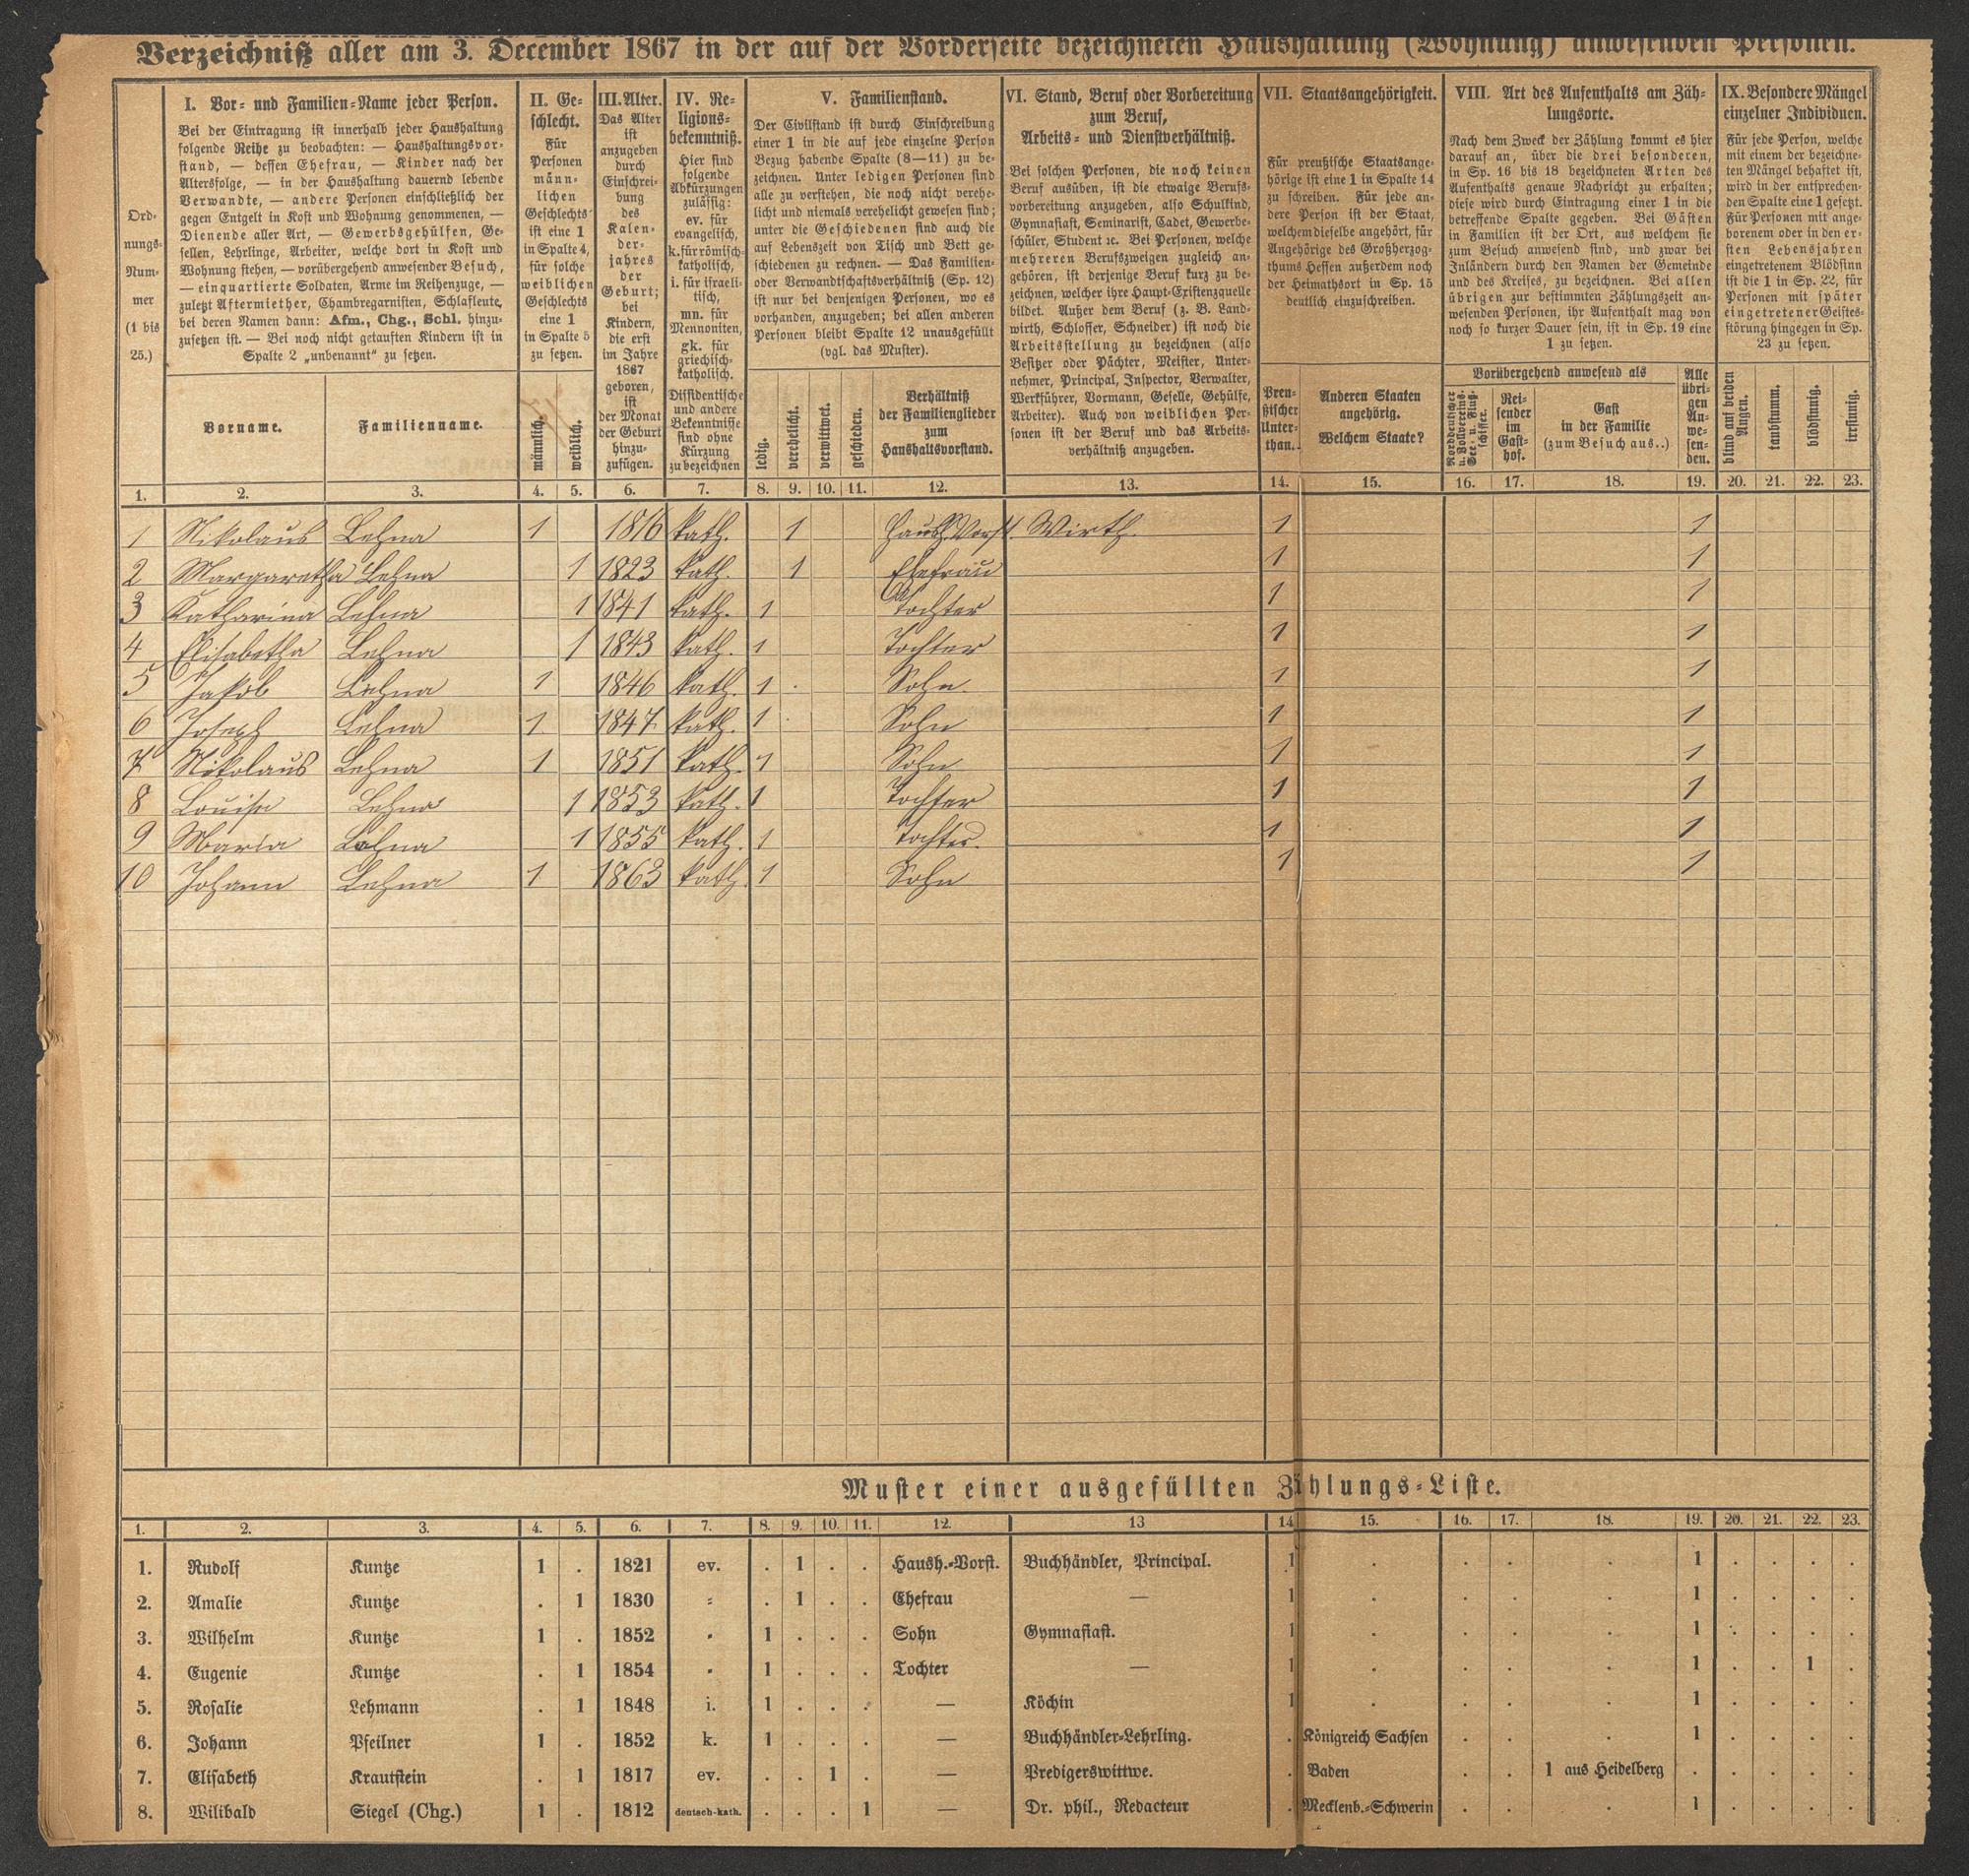 Verzeichniß aller am 3. December 1867 in der auf der Vorderseite bezeichneten Haushaltung (Wohnung) anwesenden Personen.
Ord-
nungs-
Num-
mer
(1 bis
25.)
I. Vor- und Familien-Name jeder Person.
Bei der Eintragung ist innerhalb jeder Haushaltung
folgende Reihe zu beobachten: — Haushaltungsvor-
stand, — dessen Ehefrau, — Kinder nach der
Altersfolge, — in der Haushaltung dauernd lebende
Verwandte, — andere Personen einschließlich der
gegen Entgelt in Kost und Wohnung genommenen, —
Dienende aller Art, — Gewerbsgehülfen, Ge-
sellen, Lehrlinge, Arbeiter, welche dort in Kost und
Wohnung stehen, — vorübergehend anwesender Besuch,
— einquartierte Soldaten, Arme im Reihenzuge, —
zuletzt Aftermiether, Chambregarnisten, Schlafleute,
bei deren Namen dann: Afm., Chg., Schl. hinzu-
zusetzen ist. — Bei noch nicht getauften Kindern ist in
Spalte 2 „unbenannt“ zu setzen.
Vorname.
Familienname.
II. Ge-
schlecht.
Für
Personen
männ-
lichen
Geschlechts
ist eine 1
in Spalte 4,
für solche
weiblichen
Geschlechts
eine 1
in Spalte 5
zu setzen.
männlich.
weiblich.
III. Alter.
Das Alter
ist
anzugeben
durch
Einschrei-
bung
des
Kalen-
der-
jahres
der
Geburt;
bei
Kindern,
die erst
im Jahre
1867
geboren,
ist
der Monat
der Geburt
hinzu-
zufügen.
IV. Re-
ligions-
bekenntniß.
Hier sind
folgende
Abkürzungen
zulässig:
ev. für
evangelisch,
k. für römisch-
katholisch,
i. für israeli-
tisch,
mn. für
Mennoniten,
gk. für
griechisch-
katholisch.
Dissidentische
und andere
Bekenntnisse
sind ohne
Kürzung
zu bezeichnen
V. Familienstand.
Der Civilstand ist durch Einschreibung
einer 1 in die auf jede einzelne Person
Bezug habende Spalte (8—11) zu be-
zeichnen. Unter ledigen Personen sind
alle zu verstehen, die noch nicht verehe-
licht und niemals verehelicht gewesen sind;
unter die Geschiedenen sind auch die
auf Lebenszeit von Tisch und Bett ge-
schiedenen zu rechnen. — Das Familien-
oder Verwandtschaftsverhältniß (Sp. 12)
ist nur bei denjenigen Personen, wo es
vorhanden, anzugeben; bei allen anderen
Personen bleibt Spalte 12 unausgefüllt
(vgl. das Muster).
ledig.
verehelicht.
verwittwet.
geschieden.
Verhältniß
der Familienglieder
zum
Haushaltsvorstand.
VI. Stand, Beruf oder Vorbereitung
zum Beruf,
Arbeits- und Dienstverhältniß.
Bei solchen Personen, die noch keinen
Beruf ausüben, ist die etwaige Berufs-
vorbereitung anzugeben, also Schulkind,
Gymnasiast, Seminarist, Cadet, Gewerbe-
schüler, Student ꝛc. Bei Personen, welche
mehreren Berufszweigen zugleich an-
gehören, ist derjenige Beruf kurz zu be-
zeichnen, welcher ihre Haupt-Existenzquelle
bildet. Außer dem Beruf (z. B. Land-
wirth, Schlosser, Schneider) ist noch die
Arbeitsstellung zu bezeichnen (also
Besitzer oder Pächter, Meister, Unter-
nehmer, Principal, Inspector, Verwalter,
Werkführer, Vormann, Geselle, Gehülfe,
Arbeiter). Auch von weiblichen Per-
sonen ist der Beruf und das Arbeits-
verhältniß anzugeben.
VII. Staatsangehörigkeit.
Für preußische Staatsange-
hörige ist eine 1 in Spalte 14
zu schreiben. Für jede an-
dere Person ist der Staat,
welchem dieselbe angehört, für
Angehörige des Großherzog-
thums Hessen außerdem noch
der Heimathsort in Sp. 15
deutlich einzuschreiben.
Preu-
ßischer
Unter-
than.
Anderen Staaten
angehörig.
Welchem Staate?
VIII. Art des Aufenthalts am Zäh-
lungsorte.
Nach dem Zweck der Zählung kommt es hier
darauf an, über die drei besonderen,
in Sp. 16 bis 18 bezeichneten Arten des
Aufenthalts genaue Nachricht zu erhalten;
diese wird durch Eintragung einer 1 in die
betreffende Spalte gegeben. Bei Gästen
in Familien ist der Ort, aus welchem sie
zum Besuch anwesend sind, und zwar bei
Inländern durch den Namen der Gemeinde
und des Kreises, zu bezeichnen. Bei allen
übrigen zur bestimmten Zählungszeit an-
wesenden Personen, ihr Aufenthalt mag von
noch so kurzer Dauer sein, ist in Sp. 19 eine
1 zu setzen.
Vorübergehend anwesend als
Norddeutscher
u. Zollvereins-
See- u. Fluß-
schiffer.
Rei-
sender
im
Gast-
hof.
Gast
in der Familie
(zum Besuch aus..)
Alle
übri-
gen
An-
we-
sen-
den.
IX. Besondere Mängel
einzelner Individuen.
Für jede Person, welche
mit einem der bezeichne-
ten Mängel behaftet ist,
wird in der entsprechen-
den Spalte eine 1 gesetzt.
Für Personen mit ange-
borenem oder in den er-
sten Lebensjahren
eingetretenem Blödsinn
ist die 1 in Sp. 22, für
Personen mit später
eingetretener Geistes-
störung hingegen in Sp.
23 zu setzen.
blind auf beiden
Augen.
taubstumm.
blödsinnig.
irrsinnig.
1. 2. 3. 4. 5. 6. 7. 8. 9. 10. 11. 12. 13. 14. 15. 16. 17. 18. 19. 20. 21. 22. 23.
1 Nikolaus Lehna 1 1816 kath. 1 Haush. Vorst. Wirth. 1 1
2 Margaretha Lehna 1 1823 kath. 1 Ehefrau 1 1
3 Katharina Lehna 1 1841 kath. 1 Tochter 1 1
4 Elisabetha Lehna 1 1843 kath. 1 Tochter 1 1
5 Jakob Lehna 1 1846 kath. 1 Sohn. 1 1
6 Joseph Lehna 1 1847 kath. 1 Sohn 1 1
7 Nikolaus Lehna 1 1851 kath. 1 Sohn 1 1
8 Louise Lehna 1 1853 kath. 1 Tochter 1 1
9 Maria Lehna 1 1855 kath. 1 Tochter. 1 1
10 Johann Lehna 1 1863 kath. 1 Sohn 1 1
Muster einer ausgefüllten Zählungs-Liste.
1. 2. 3. 4. 5. 6. 7. 8. 9. 10. 11. 12. 13 14 15. 16. 17. 18. 19. 20. 21. 22. 23.
1. Rudolf Kuntze 1 . 1821 ev. . 1 . . Haush.-Vorst. Buchhändler, Principal. 1 . . . . 1 . . . .
2. Amalie Kuntze . 1 1830 = . 1 . . Ehefrau — 1 . . . . 1 . . . .
3. Wilhelm Kuntze 1 . 1852 " 1 . . . Sohn Gymnasiast. 1 . . . . 1 . . . .
4. Eugenie Kuntze . 1 1854 " 1 . . . Tochter — 1 . . . . 1 . . 1 .
5. Rosalie Lehmann . 1 1848 i. 1 . . . — Köchin 1 . . . . 1 . . . .
6. Johann Pfeilner 1 . 1852 k. 1 . . . — Buchhändler-Lehrling. . Königreich Sachsen . . . 1 . . . .
7. Elisabeth Krautstein . 1 1817 ev. . . 1 . — Predigerswittwe. . Baden . . 1 aus Heidelberg . . . . .
8. Wilibald Siegel (Chg.) 1 . 1812 deutsch-kath. . . . 1 — Dr. phil., Redacteur . Mecklenb.-Schwerin . . . 1 . . . .